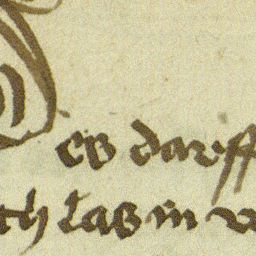 es darff
th las in